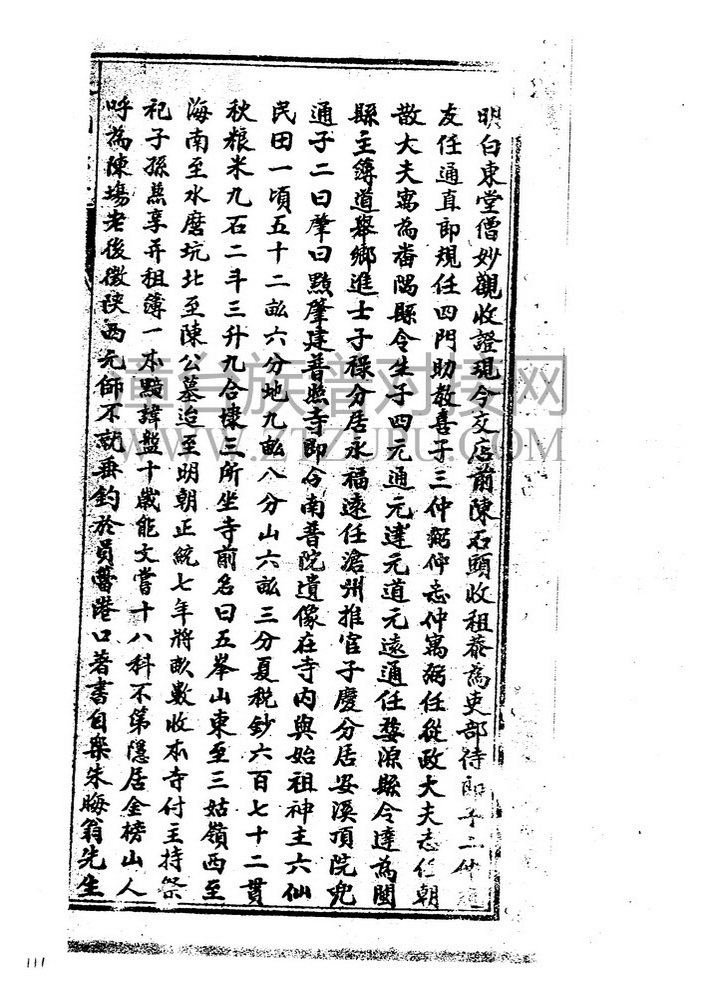 明白東堂僧妙觀收證現今交店前陳石頭收租蔡為吏部侍郎子二仲
友任通直郎規任四門助教喜子三仲弼仲志仲寓弼任從政大夫志任朝
散大夫寓為番禺縣令生子四元通元達元道元遠通任婺源縣令達為閩
縣主簿道舉鄉進士子祿分居永福遠任滄州推官子慶分居安溪項院兜
通子二曰肇曰黯肇建普照寺即今南普院遺像在寺内與始祖神主六仙
民田一頃五十二畝六分地九畝八分山六畝三分夏稅鈔六百七十二貫
秋粮米九石二斗三升九合棲三所坐寺前名曰五峯山東至三姑嶺西至
海南至水磨坑北至陳公墓迨至明朝正統七年將畝數收本寺付主持祭
祀子孫烝享开租簿一本黯諱盤十歲能文嘗十八科不第隱居金榜山人
呼為陳塲老後徵陝西元師不就垂釣於員當港口著書自樂朱晦翁先生
漳台族譜对接网
WWW.ZTZUPU.COM
111